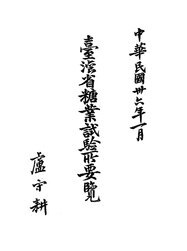 中華民國卅六年一月
臺灣省糖業試驗所要覽
盧守耕